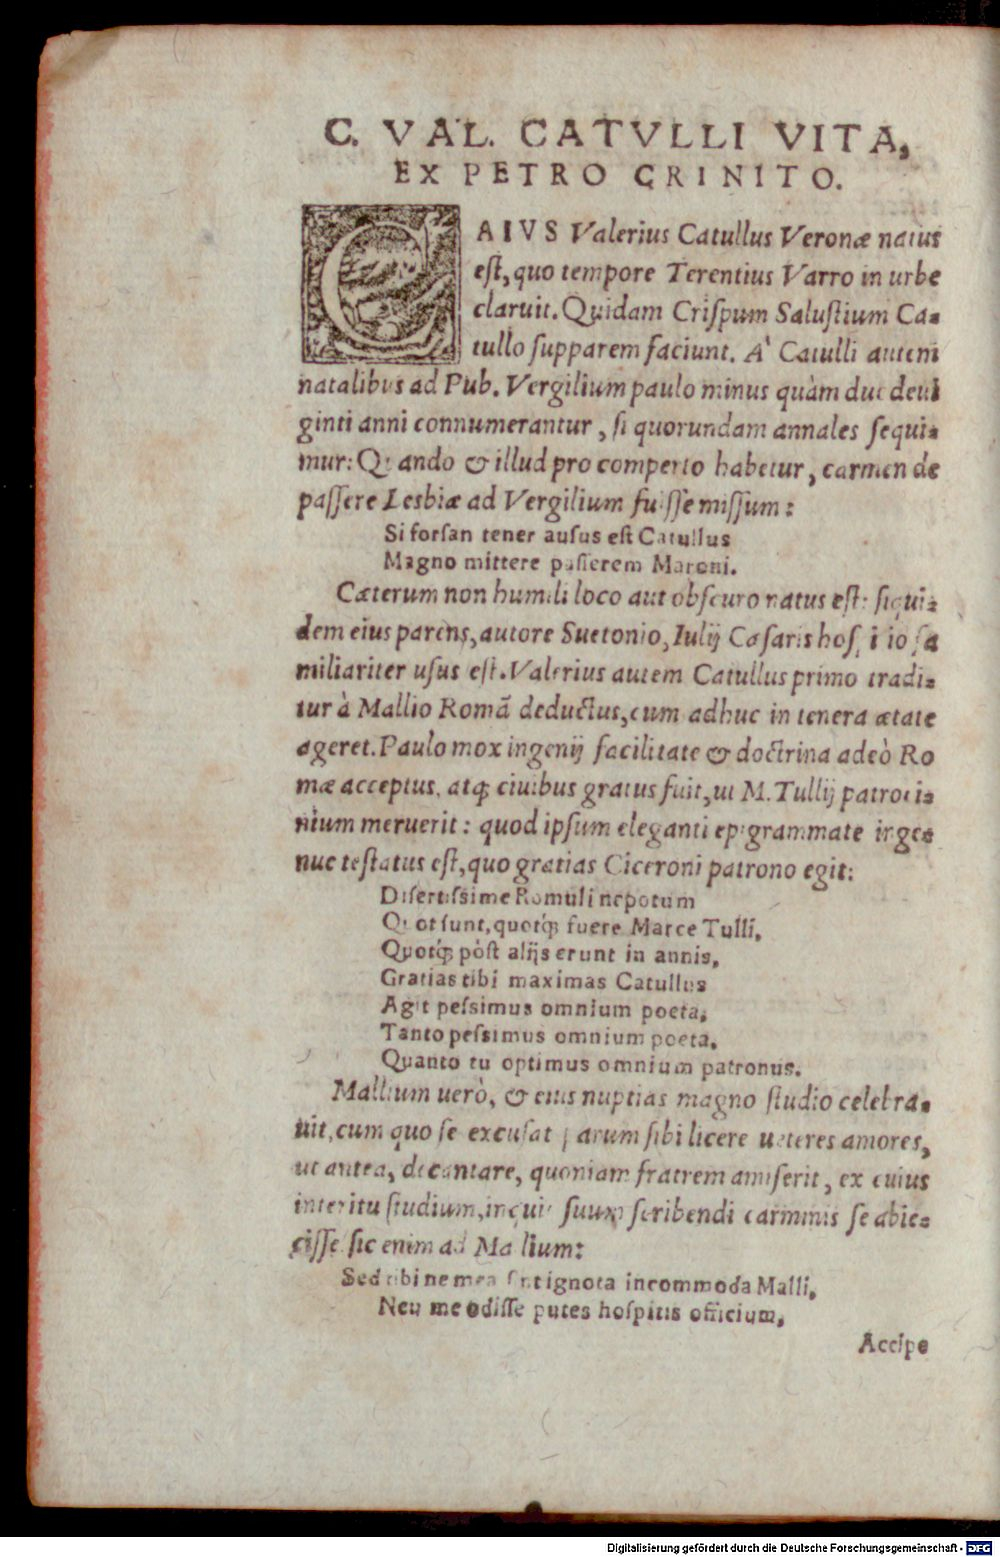 C. VAL. CATVLLI VITA,
EX PETRO CRINITO.
CAIVS Valerius Catullus Veronæ natus
eſt, quo tempore Terentius Varro in urbe
claruit. Quidam Criſpum Saluſtium Ca-
tullo ſupparem faciunt. A' Catulli autem
natalibus ad Pub. Vergilium paulo minus quàm duo deui
ginti anni connumerantur, ſi quorundam annales ſequi-
mur: Quando & illud pro comperto habetur, carmen de
paſſere Lesbiæ ad Vergilium fuiſſe miſſum:
Si forſan tener auſus eſt Catullus
Magno mittere paſſerem Maroni.
Cæterum non humili loco aut obſcuro natus eſt: ſiqui-
dem eius parens, autore Suetonio, Iulij Cæſaris hoſpitio fa
miliariter uſus eſt. Valerius autem Catullus primo tradi-
tur à Mallio Romã deductus, cum adhuc in tenera ætate
ageret. Paulo mox ingenij facilitate & doctrina adeò Ro
mæ acceptus, atq; ciuibus gratus fuit, ut M. Tullij patroci-
nium meruerit: quod ipſum eleganti epigrammate inge-
nue teſtatus eſt, quo gratias Ciceroni patrono egit:
Diſertiſsime Romuli nepotum
Quot ſunt, quotq́; fuere Marce Tulli,
Quotq́; pòſt alijs erunt in annis,
Gratias tibi maximas Catullus
Agit peſsimus omnium poeta,
Tanto peſsimus omnium poeta,
Quanto tu optimus omnium patronus.
Mallium uerò, & eius nuptias magno ſtudio celebra-
uit, cum quo ſe excuſat parum ſibi licere ueteres amores,
ut antea, decantare, quoniam fratrem amiſerit, ex cuius
interitu ſtudium, inquit ſuum ſcribendi carminis ſe abie-
ciſſe. ſic enim ad Mallium:
Sed tibi ne mea ſint ignota incommoda Malli,
Neu me odiſſe putes hoſpitis officium,
Accipe
Digitalisierung gefördert durch die Deutsche Forschungsgemeinschaft - DFG